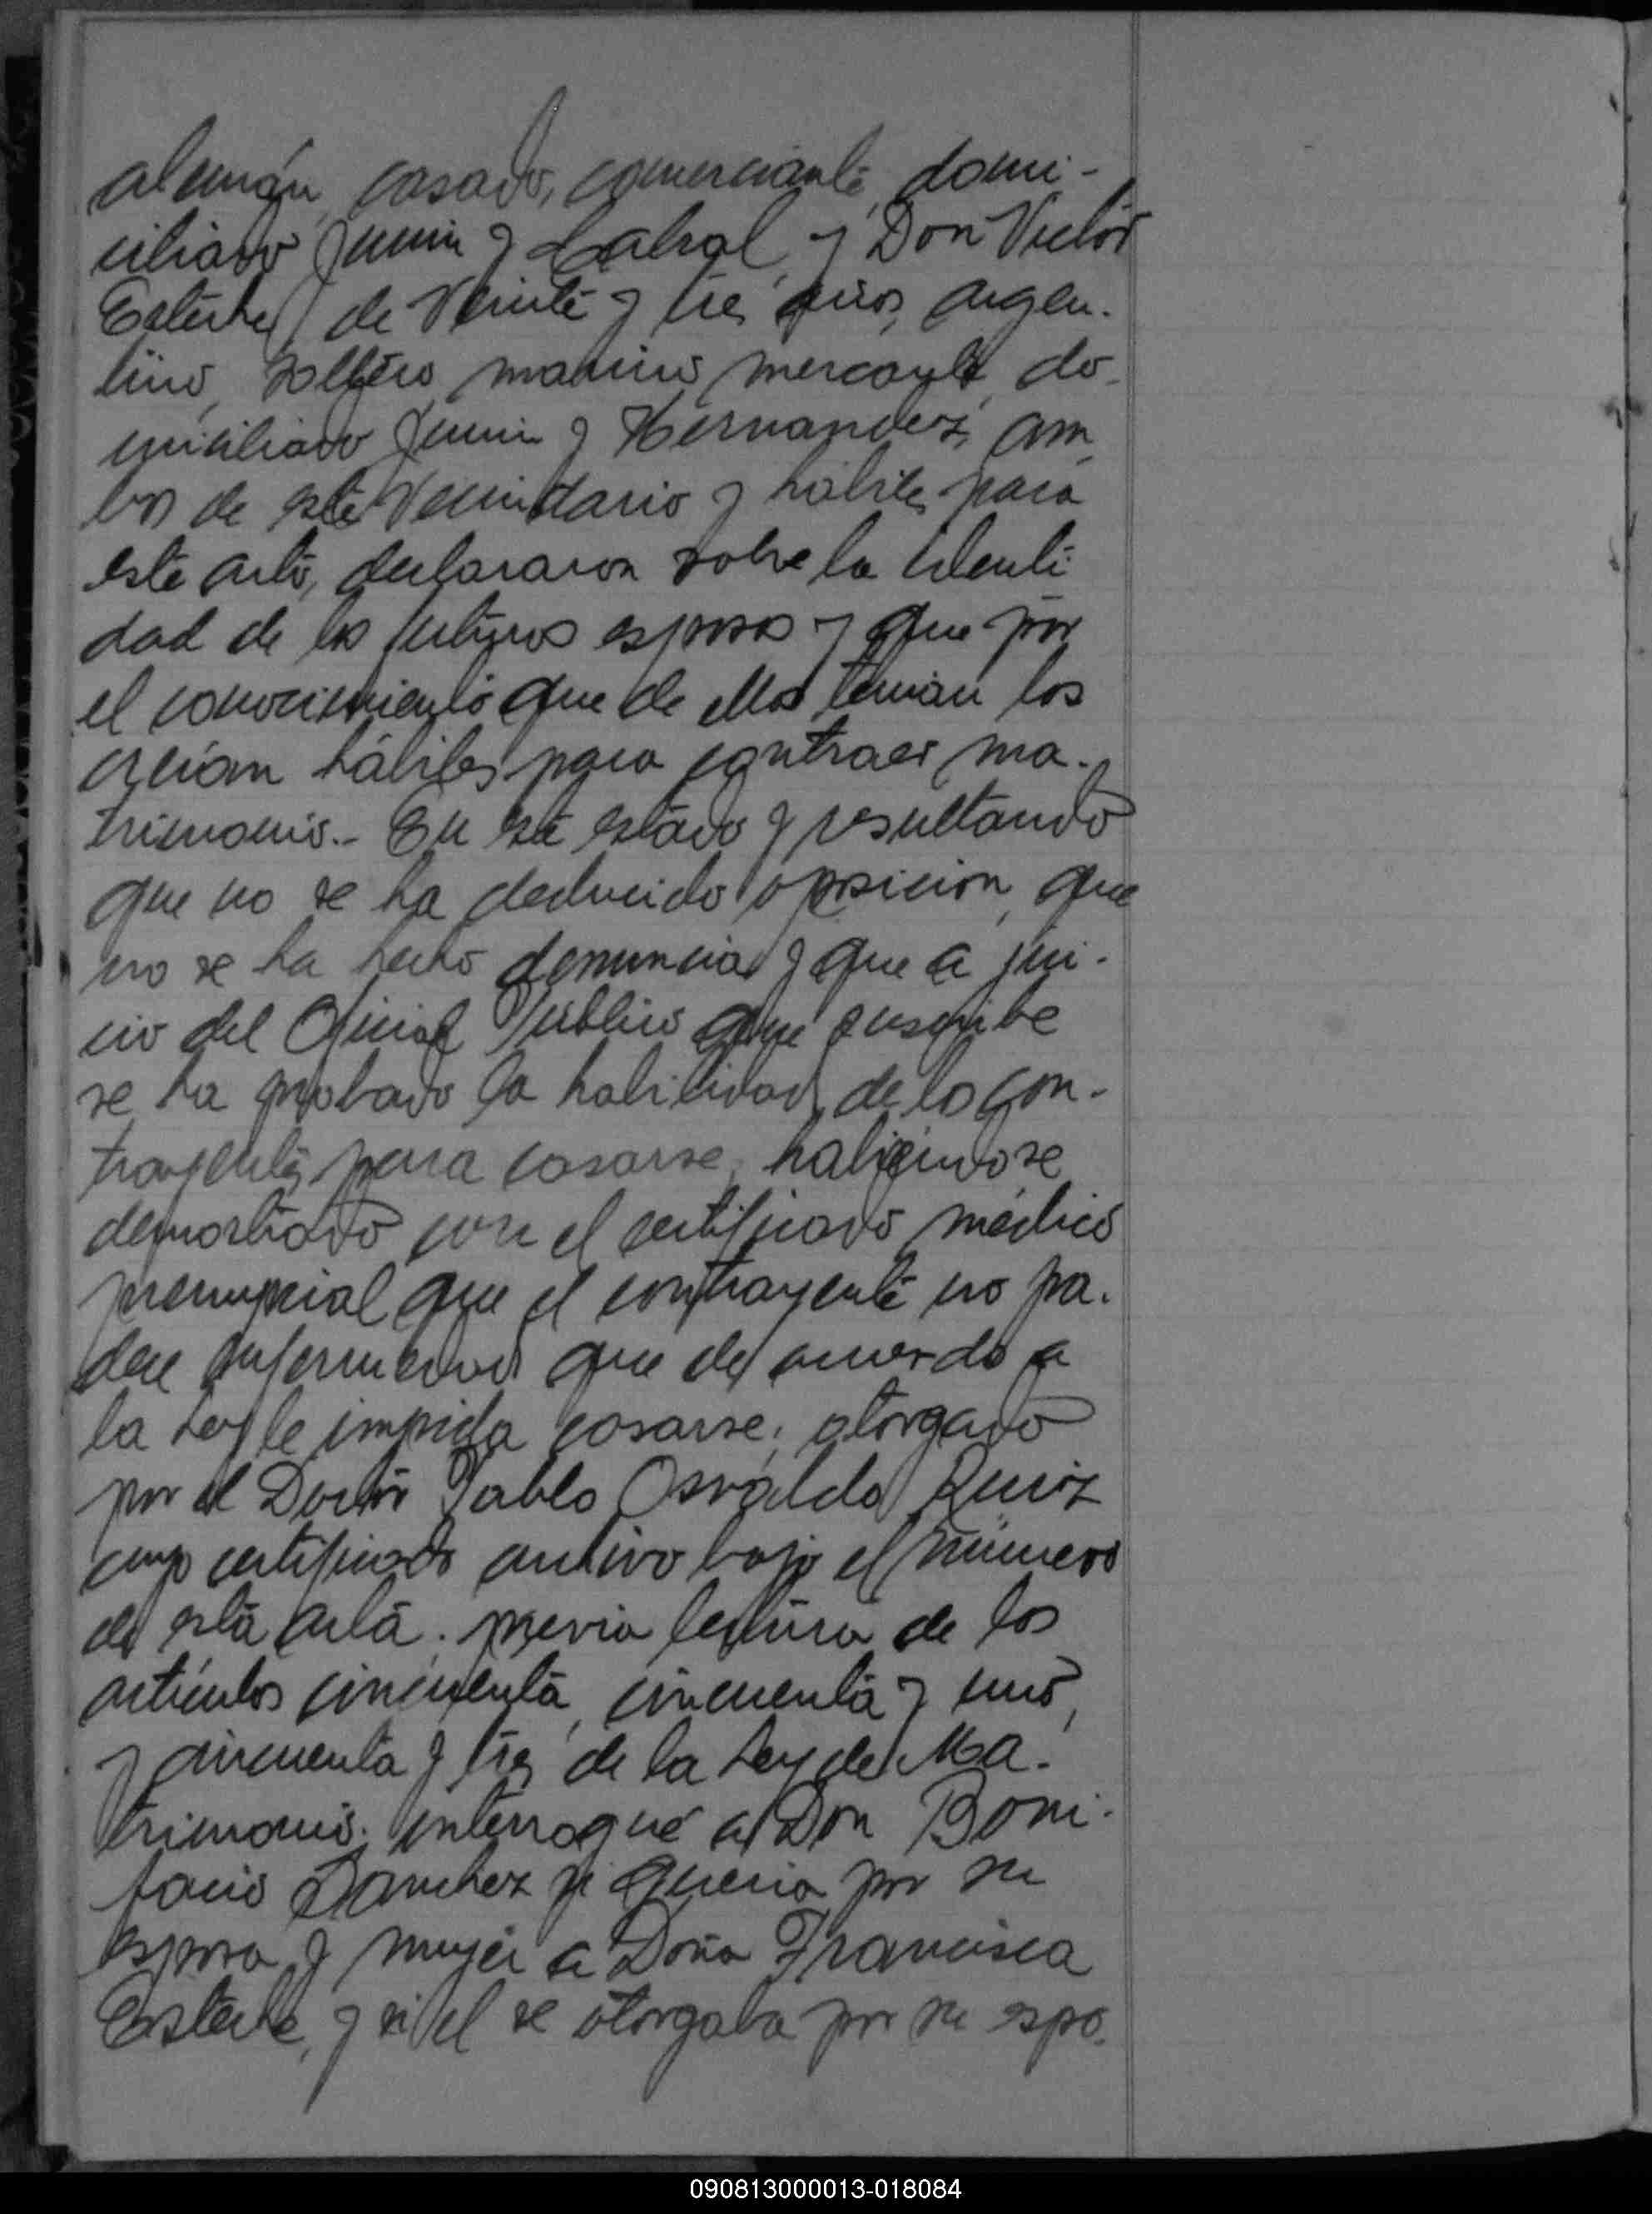 alemán, casado, comerciante, domi-
ciliado Junin y Cabral, y Don Victor
Esteche, de veinte y tres años, argen-
tino, soltero, marino mercante, do-
miciliado Junin y Hernandez, am-
bos de este vecindario y habiles para
este acto, declararon sobre la identi-
dad de los futuros esposos y que por
el conocimiento que de ellos tenian los
creían hábiles para contraer ma-
trimonio.- En este estado y resultando
que no se ha deducido oposicion, que
no se ha hecho denuncia y que a jui-
cio del Oficial Público que suscribe
se ha probado la habilidad de los con-
trayentes para casarse, habiéndose
demostrado con el certificado médico
prenupcial que el contrayente no pa-
dece enfermedad que de acuerdo a
la Ley le impida casarse, otorgado
por el Doctor Pablo Osvaldo Ruiz
cuyo certificado archivo bajo el número
de esta acta. previa lectura de los
artículos cincuenta, cincuenta y uno,
y cincuenta y tres de la Ley de Ma-
trimonio. interrogué a Don Boni-
facio Sanchez si queria por su
esposa y mujer a Doña Francisca
Esteche, y si el se otorgaba por su espo-
090813000013-018084